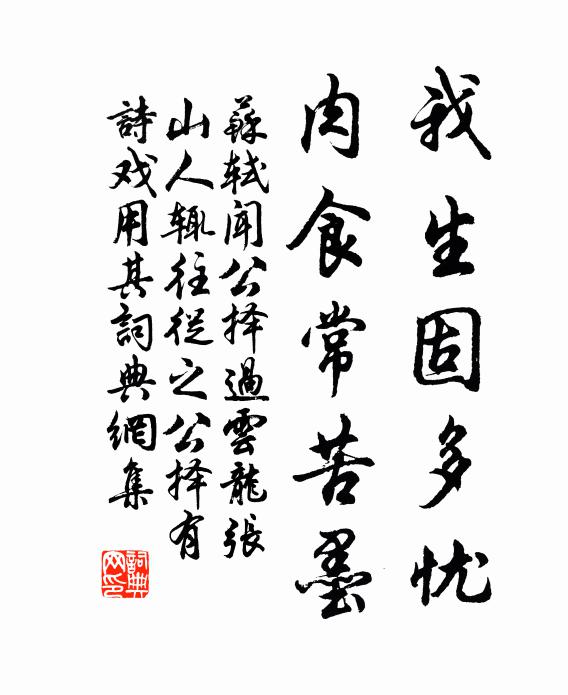 我生固多忧
肉食常苦墨
蘇轼闻公择過雲龍張
山人辄往從之公择有
詩戏用其詞典網集
詞典网印